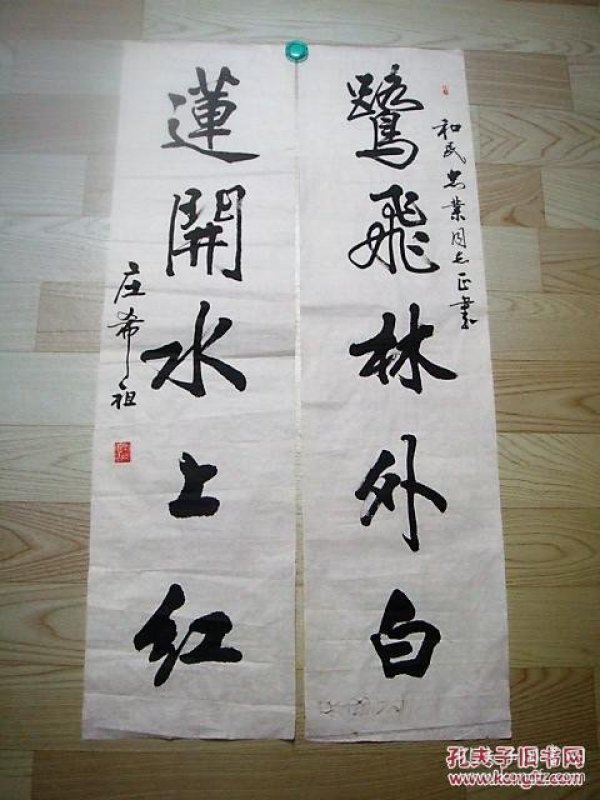 鷺飛林外白
和民忠業同志正書
蓮開水上紅
庄希祖
孔夫子旧书网
www.kongfz.com